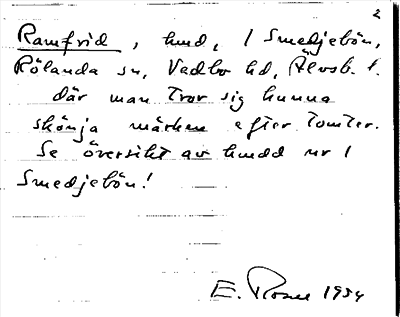 2
Ramfrid, hmd, 1 Smedjebön,
Rölanda sn, Vedbo hd, Älvsb. l.
där man tror sig kunna
skönja märken efter tomter.
Se översikt av hmdd nr 1
Smedjebön!
E. Rosell 1934